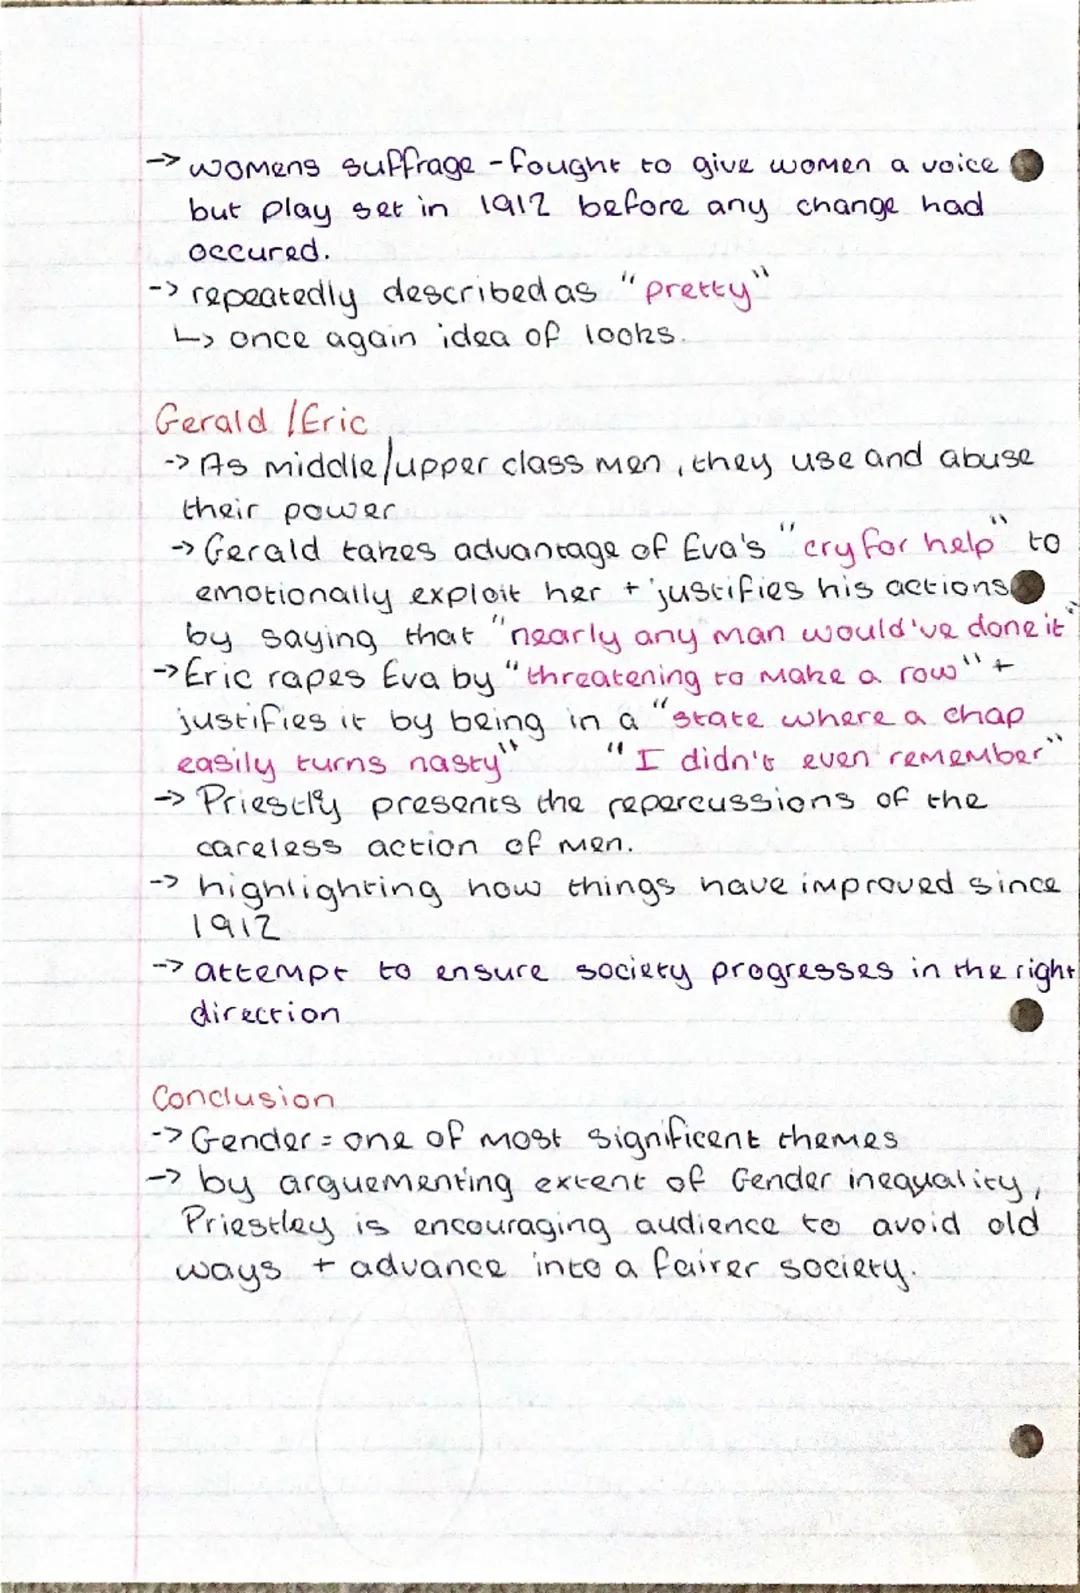 -> womens suffrage - fought to give women a voice
but play set in 1912 before any change had
occured.
-> repeatedly described as "pretty"
↳ once again idea of looks.
Gerald / Eric
-> As middle/upper class men, they use and abuse
their power
-> Gerald takes advantage of Eva's "cry for help" to
emotionally exploit her + justifies his actions
by saying that "nearly any man would've done it"
-> Eric rapes Eva by "threatening to make a row" +
justifies it by being in a "state where a chap
easily turns nasty" "I didn't even remember"
-> Priestly presents the repercussions of the
careless action of men.
-> highlighting how things have improved since
1912
-> attempt to ensure society progresses in the right
direction
Conclusion
-> Gender = one of most significent themes
-> by arguementing extent of Gender inequality,
Priestley is encouraging audience to avoid old
ways + advance into a fairer society.